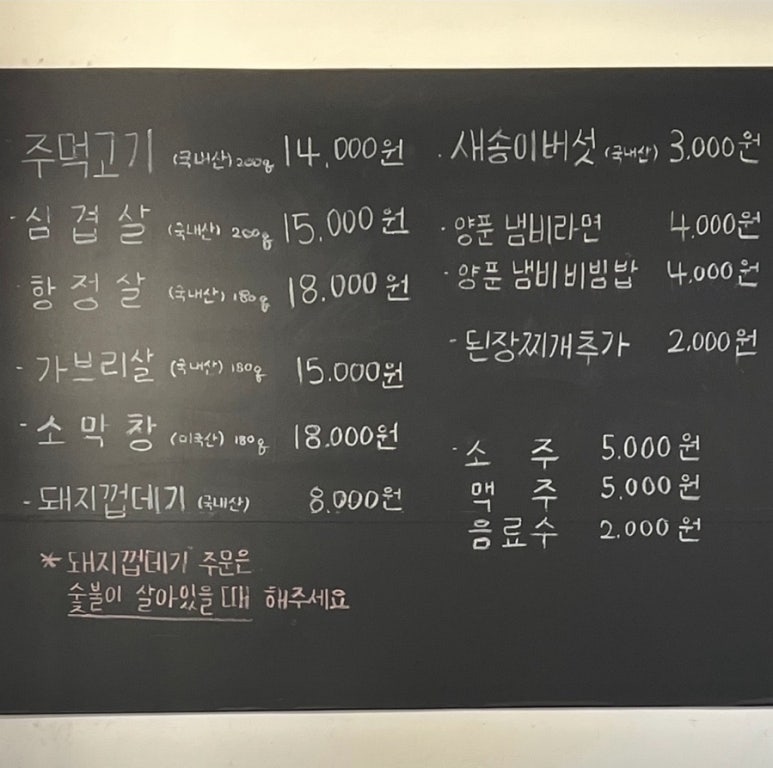 주먹고기 (국내산) 200g 14.000원
· 심겹살 (국내산) 200g 15.000원
· 항정살 (국내산) 180g 18.000원
- 가브리살 (국내산) 180g 15.000원
- 소막창 (미국산) 180g 18.000원
- 돼지껍데기 (국내산) 8.000원
* 돼지껍데기 주문은
숯불이 살아있을 때 해주세요
· 새송이버섯 (국내산) 3.000원
· 양푼 냄비라면 4.000원
· 양푼 냄비비빔밥 4.000원
- 된장찌개추가 2.000원
· 소주 5.000원
맥주 5.000원
음료수 2.000원